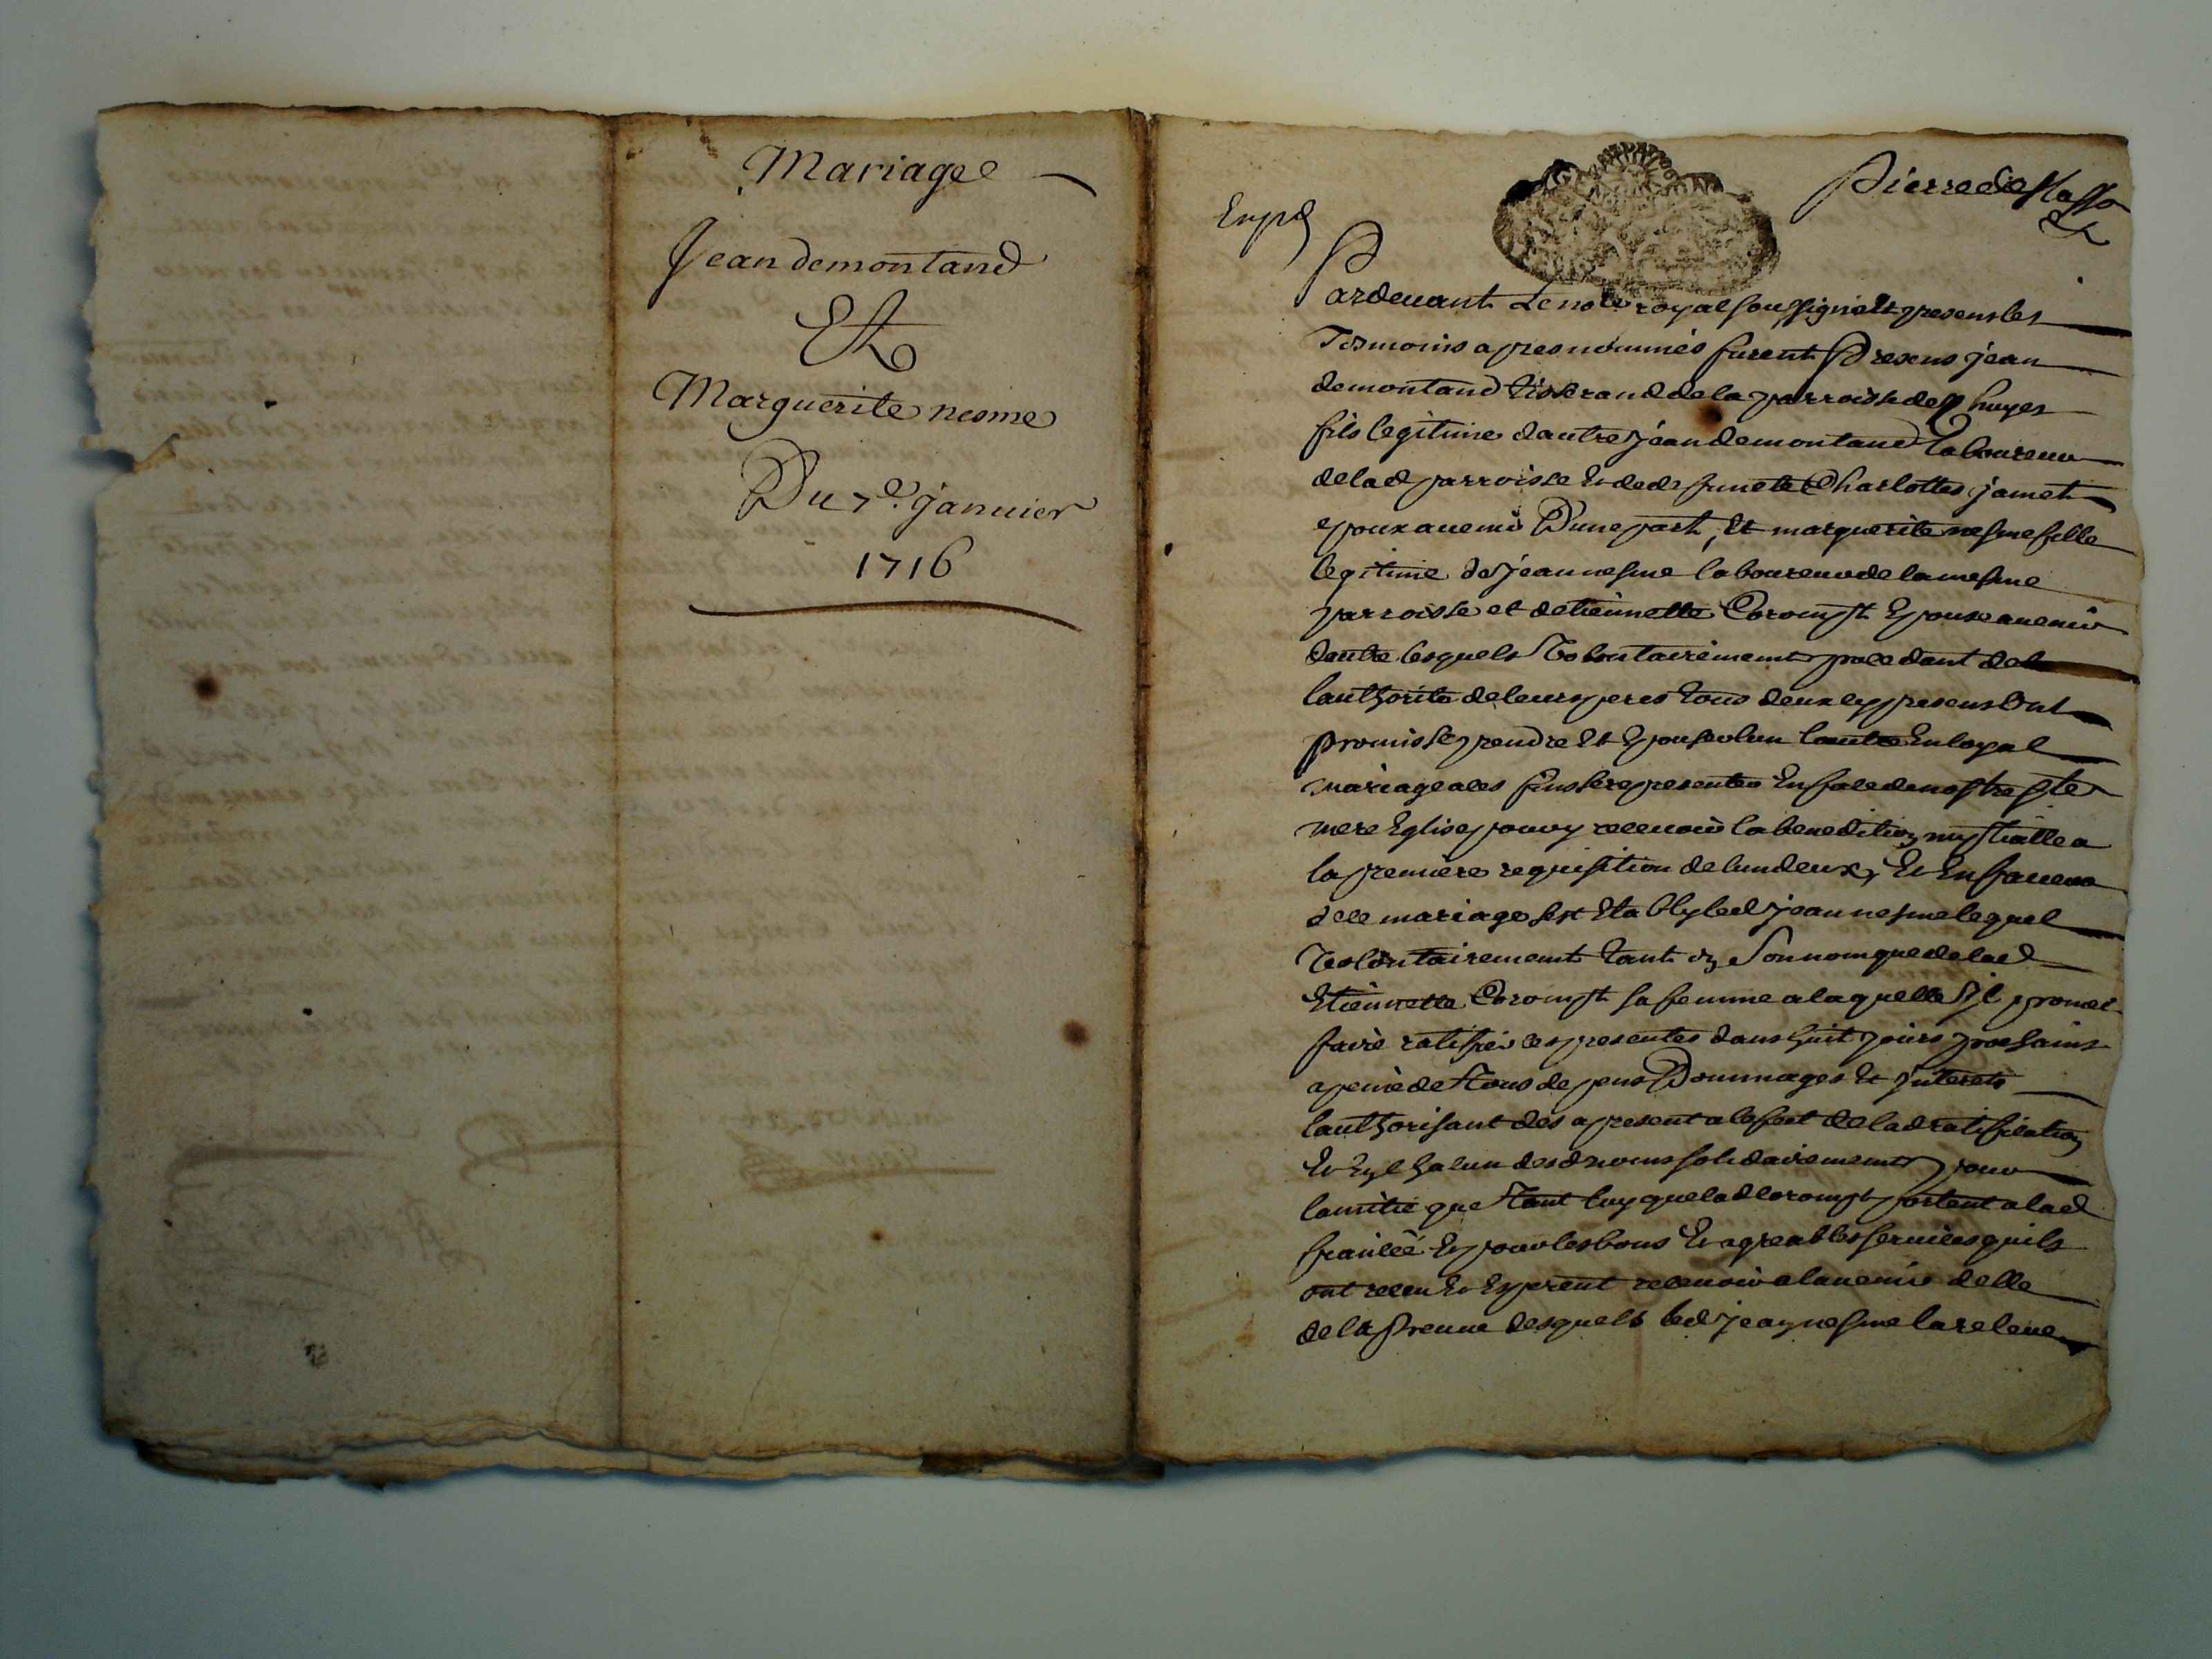 Mariage
Jean demontand
Et
Marguerite nesme
Du 7e. januier
1716
Pierre de
Expd
Pardeuant Le nore royal soussigné Et presens les
Tesmoins apres nommés furent Presens jean
demontand tisserand de la parroisse de
fils legitime dautre jean demontand Laboureur
de lad parroisse Et de defunete Charlottes jamet
epoux auenir Dune part, Et marguerite nesme fille
legitime de jean nesme laboureur de la mesme
parroisse et detiennette Corompt Epouse auenir
dautre lesquels Volontairement procedant de
lauthorité de leurs peres tous deux ey presens Ont
promis se prendre Et Epouser lun lautre En loyal
mariage a ces fins se representer En face de nostre Ste
mere Eglise pour y receuoir la benedition nuptialle a
la premiere requisition de lun deux, Et En faueur
de ce mariage sest Etably led jean nesme lequel
Volontairement tant en Son nom que de lad
Etiennette Corompt sa femme a laquelle Il promet
faire ratifier ces presentes dans huit jours prochains
apeine de tous depens Dommages Et Interets
lauthorisant des apresent a leffect de lad ratification
Et Eyl un desd noms solidairement pour
lamitié que tant luy que lad Corompt portent a lad
fiancéé Et pour les bons Et agreables seruices quils
ont receu Et Esperent receuoir alauenir delle
de la preuue desquels led jean nesme la releue